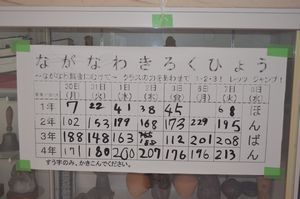 ながなわきろくひょう
〜ながなわ集会にむけて〜 クラスの力を合わせて 1・2・3! レッツ ジャンプ!
30日 31日 1日 2日 3日 6日 7日 8日
(月) (火) (水) (木) (金) (月) (火) (水)
1年 22 41 38 45 68 ほ
2年 102 163 199 168 173 229 195 ん
3年 188 148 163 182 112 201 208 ば
4年 171 180 200 207 176 196 213 ん
すう字のみ、かきこんでください。